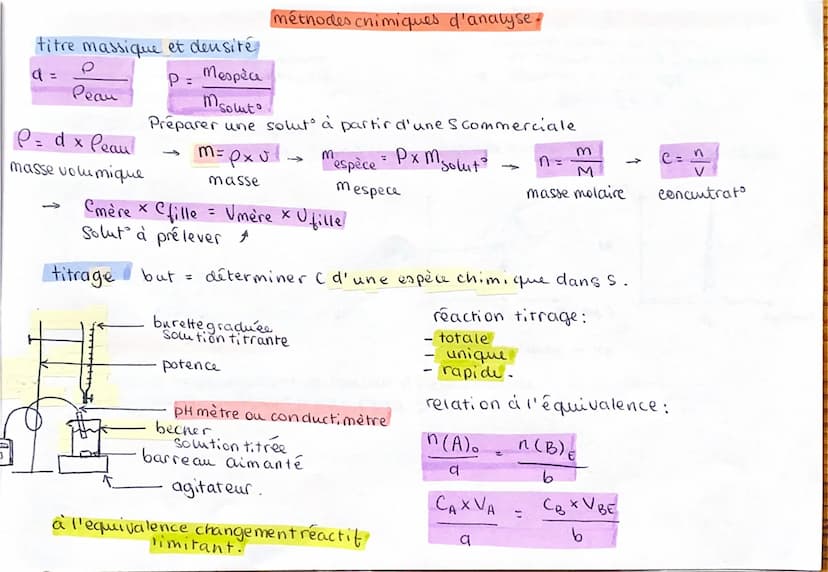 métnodes cnimiques d'analyse.
titre massique et densité
d = ρ / ρeau
P = mespèce / msolut°
Préparer une solut° à partir d'une S commerciale
ρ = d x ρeau → m = ρ x v → mespèce = P x msolut° → n = m / M → c = n / v
masse volumique masse mespece masse molaire concentrat°
→ Cmère x Cfille = Vmère x Vfille
Solut° à prélever ↑
titrage but = déterminer C d'une espèce chimique dans S.
burette graduée
solution titrante
potence
pH mètre ou conductimètre
bécher
solution titrée
barreau aimanté
agitateur.
à l'equivalence changement réactif
limitant.
réaction titrage :
- totale
- unique
- rapide.
relation à l'équivalence :
n(A)o / a = n(B)E / b
CA x VA / a = CB x VBE / b